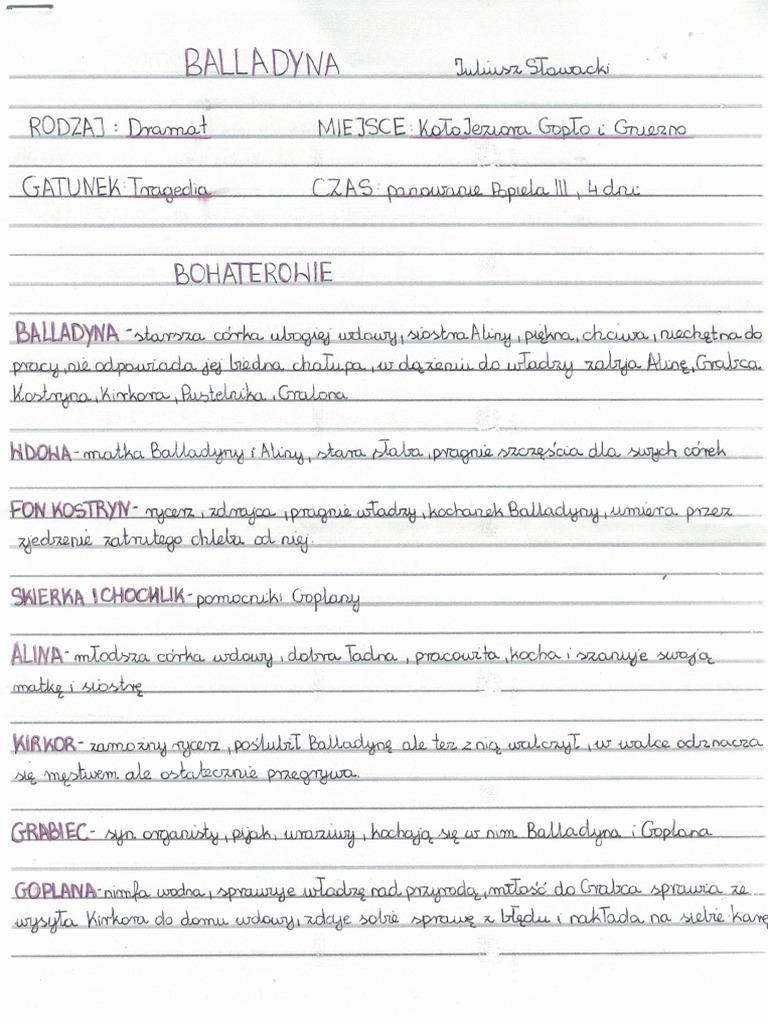 BALLADYNA Juliusz Słowacki
RODZAJ: Dramat MIEJSCE: Koło Jeziora Gopło i Gniezno
GATUNEK: Tragedia CZAS: panowanie Popiela III, 4 dni
BOHATEROWIE
BALLADYNA - starsza córka ubogiej wdowy, siostra Aliny, piękna, chciwa, niechętna do
pracy, nie odpowiada jej biedna chałupa, w dążeniu do władzy zabija Alinę, Grabca.
Kostryna, Kirkora, Pustelnika, Gralona
WDOWA - matka Balladyny i Aliny, stara słaba, pragnie szczęścia dla swych córek
FON KOSTRYN - rycerz, zdrajca, pragnie władzy, kochanek Balladyny, umiera przez
zjedzenie zatrutego chleba od niej.
SKIERKA I CHOCHLIK - pomocniki Goplany
ALINA - młodsza córka wdowy, dobra ładna, pracowita, kocha i szanuje swoją
matkę i siostrę
KIRKOR - zamożny rycerz, poślubił Balladynę ale też z nią walczył, w walce odznacza
się męstwem ale ostatecznie przegrywa.
GRABIEC - syn organisty, pijak, wrażliwy, kochają się w nim Balladyna i Goplana
GOPLANA - nimfa wodna, sprawuje władzę nad przyrodą, miłość do Grabca sprawia że
wysyła Kirkora do domu wdowy, zdaje sobie sprawę z błędu i nakłada na siebie karę